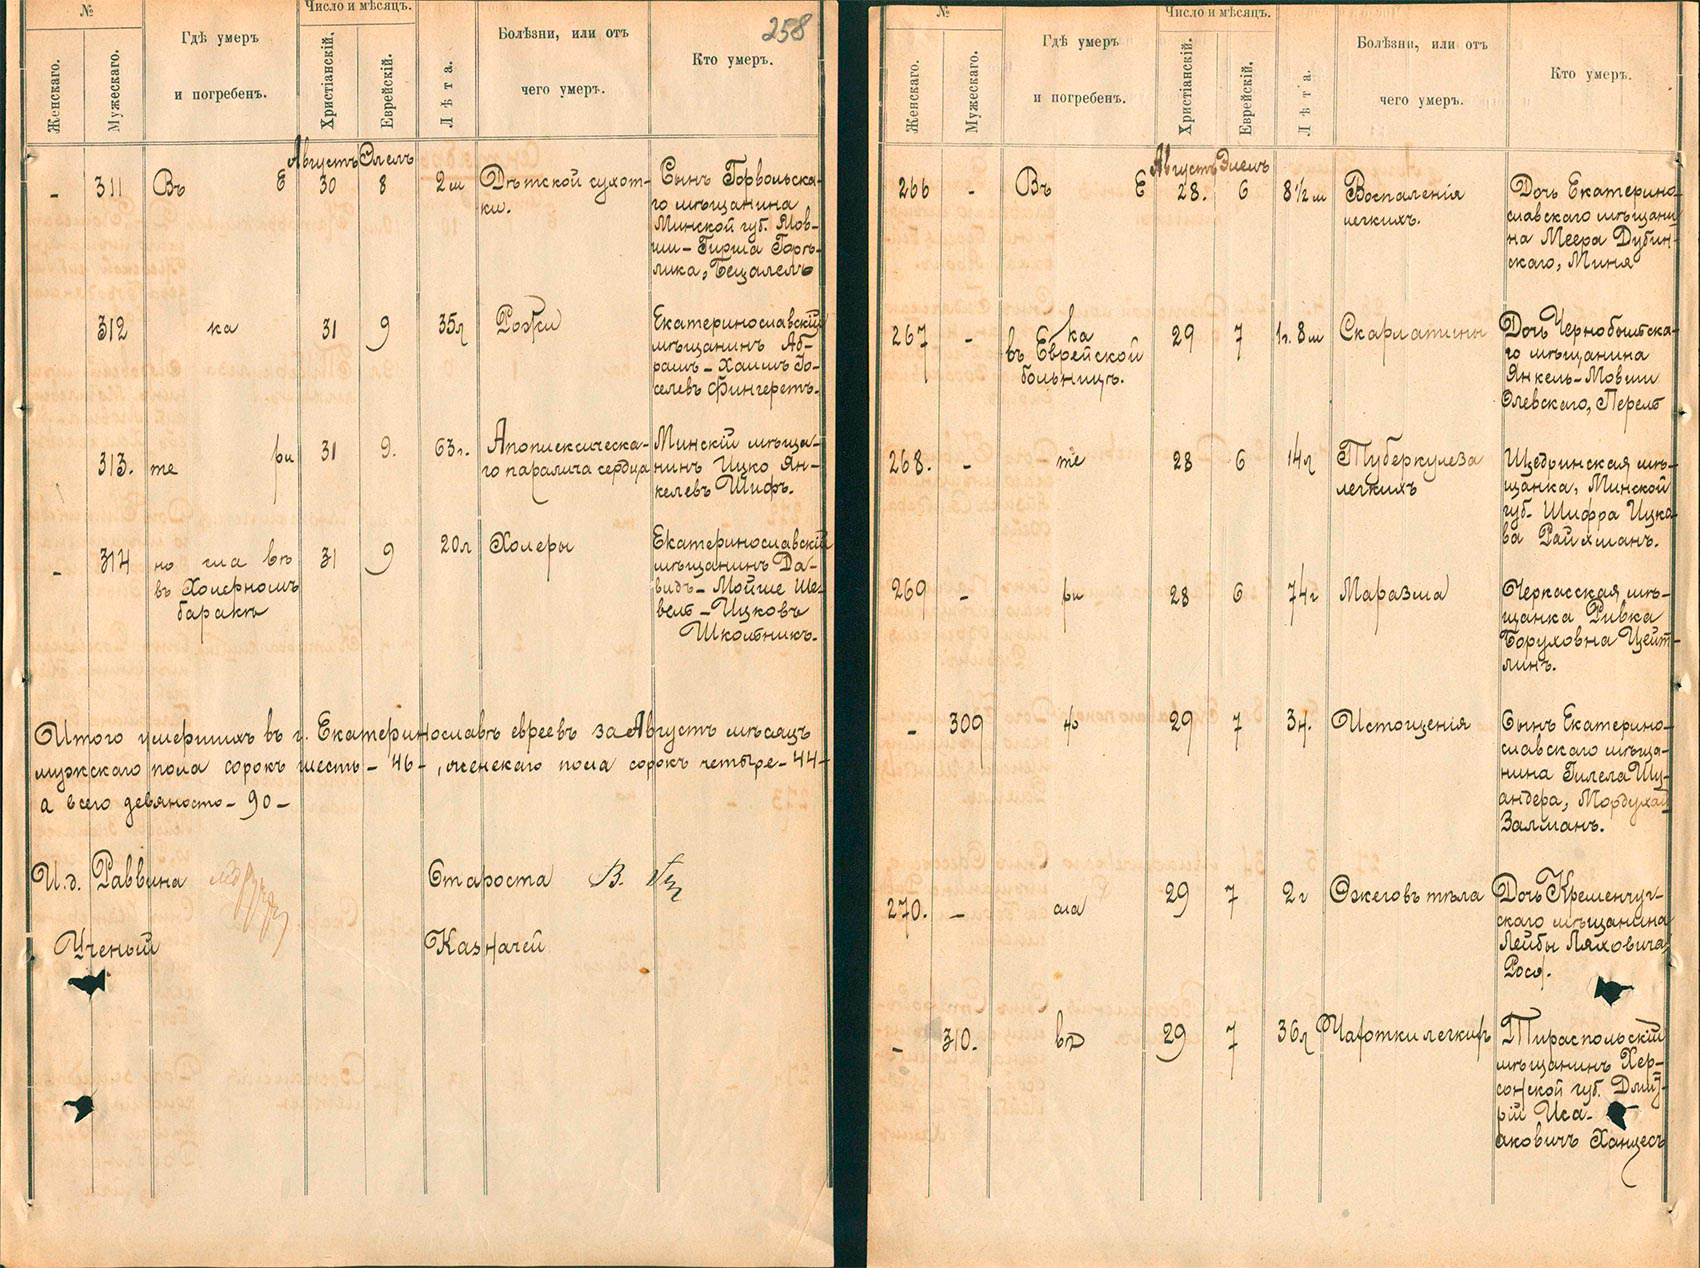 №
Женскаго.
Мужескаго.
Гдѣ умеръ
и погребенъ.
Число и мѣсяцъ.
Христіанскій.
Еврейскій.
Лѣта.
Болѣзни, или отъ
чего умеръ.
Кто умеръ.
258
Августъ Элелъ
- 311 Въ Е 30 8 2 м Дѣтской сухот-
ки.
Сынъ Горвольска-
го мѣщанина
Минской губ. Мов-
ши-Гирша Горѣ-
лика, Бецалелъ
312 ка 31 9 35 л Рожи
Екатеринославскій
мѣщанинъ Аб-
рамъ-Хаимъ Го-
селевъ Фингеретъ.
313. те ри 31 9. 63 г. Апоплексическа-
го паралича сердца
Минскій мѣща-
нинъ Ицко Ян-
келевъ Шифъ.
- 314 но сла въ 31 9 20 л Холеры
въ Холерномъ
баракѣ
Екатеринославскій
мѣщанинъ Да-
видъ-Мойше Ше-
вель-Ицковъ
Школьникъ.
Итого умершихъ въ г. Екатеринославѣ евреевъ за Августъ мѣсяцъ
мужскаго пола сорокъ шесть - 46 -, женскаго пола сорокъ четыре - 44 -
а всего девяносто - 90 -
И.д. Раввина
Староста В.
Ученый
Казначей
№
Женскаго.
Мужескаго.
Гдѣ умеръ
и погребенъ.
Число и мѣсяцъ.
Христіанскій.
Еврейскій.
Лѣта.
Болѣзни, или отъ
чего умеръ.
Кто умеръ.
Августъ Элелъ
266 - Въ Е 28. 6 8 1/2 м Воспаленія
легкихъ.
Дочь Екатерино-
славскаго мѣщани-
на Меера Дубин-
скаго, Миня
267 - ка 29 7 1 г. 8 м Скарлатины
въ Еврейской
больницѣ.
Дочь Чернобыльска-
го мѣщанина
Янкель-Мовши
Олевскаго, Перель
268. - те 28 6 14 л Туберкулеза
легкихъ
Щедринская мѣ-
щанка, Минской
губ. Шифра Ицко-
ва Райхманъ.
269 - ри 28 6 74 г Маразма
Черкасская мѣ-
щанка Ривка
Боруховна Цейт-
линъ.
- 309 но 29 7 3 д. Истощенія
Сынъ Екатерино-
славскаго мѣща-
нина Гилела Шу-
андера, Мордухай
Залманъ.
270. - сла 29 7 2 г Ожеговъ тѣла
Дочь Кременчуг-
скаго мѣщанина
Лейбы Ляховича,
Рося.
- 310. въ 29 7 36 л Чахотки легкихъ
Тираспольскій
мѣщанинъ Хер-
сонской губ. Дмит-
рій Иса-
аковичъ Ханцесъ